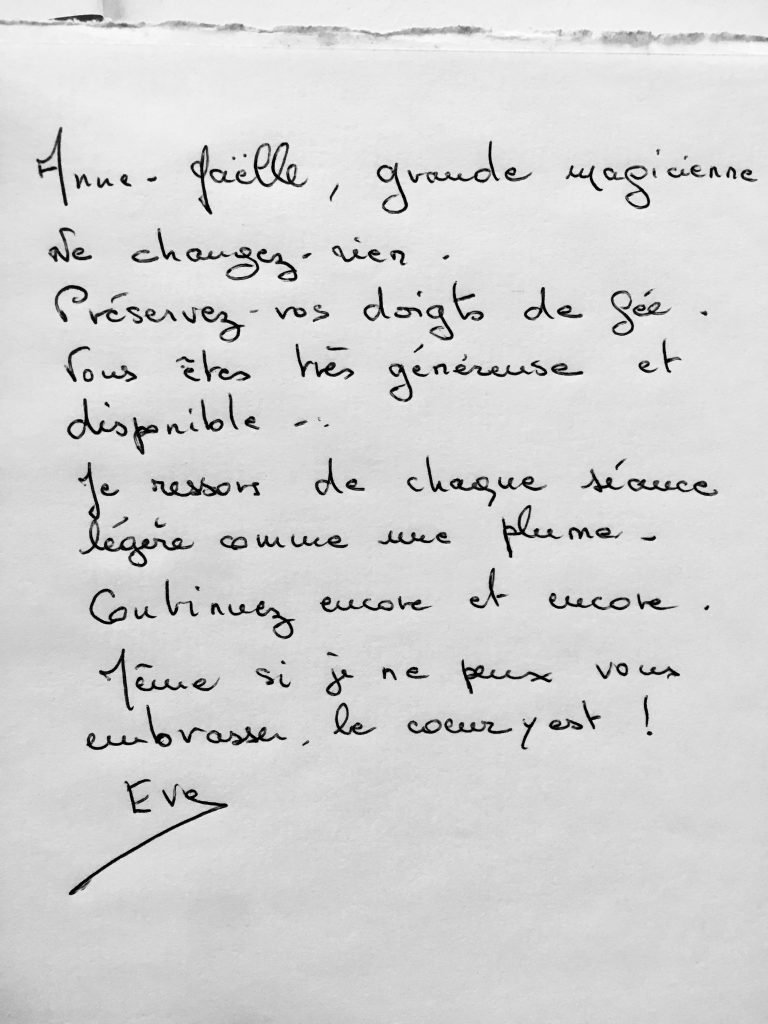 Anne-Gaëlle, grande magicienne
Ne changez-rien.
Préservez-vos doigts de fée.
Vous êtes très généreuse et
disponible ...
Je ressors de chaque séance
légère comme une plume -
Continuez encore et encore.
Même si je ne peux vous
embrasser, le coeur y est !
Eve